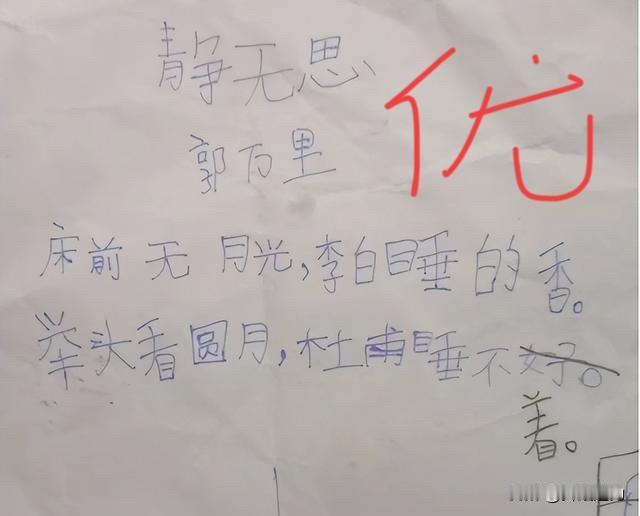 静无思
优
郭万里
床前无月光,李白睡的香。
举头看圆月,杜甫睡不好。
着。